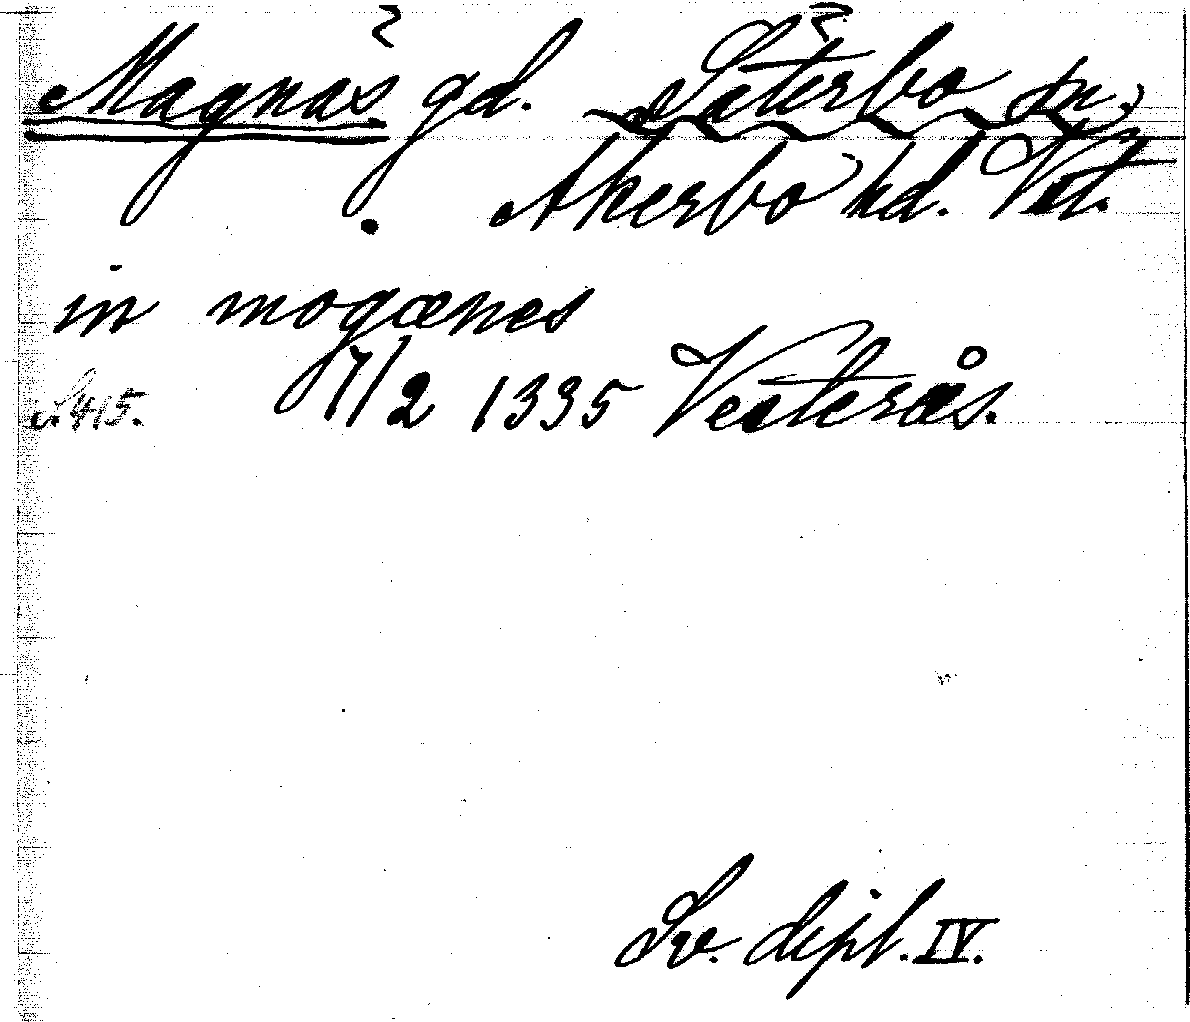 Magnäs gd. Säterbo sn,
Åkerbo hd. Vstl.
in mogænes
S. 415. 17/2 1335 Västerås.
Sv. dipl. IV.